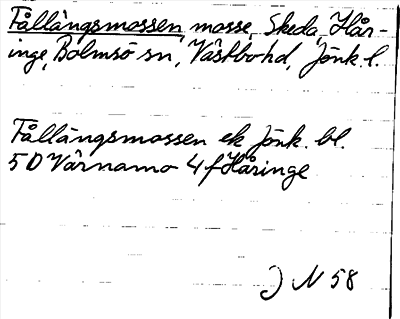 Fållängsmossen, mosse, Skeda, Hår-
inge, Bolmsö sn, Västbo hd, Jönk. l.
Fållängsmossen ek Jönk. bl.
5D Värnamo 4f Håringe
J N 58